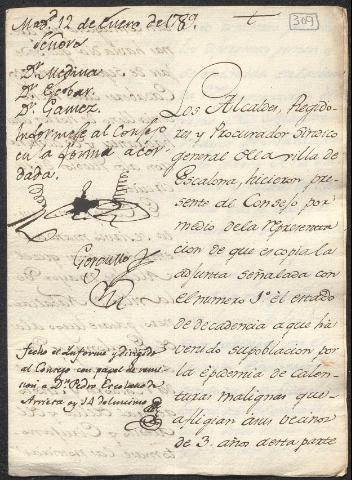 Mad.d 12 de Enero de 1789.
309
Señores
Dr. Medina
Dr. Escobar.
Dr. Gamez.
Informese al Consejo
en la forma acor
dada.
Fecho el Informe y dirigido
al Consejo con papel de remi
sion a Dn. Pedro Escolano de
Arrieta en 14 del mismo
Los Alcaldes, Regido
res y Procurador Sindico
general de la villa de
Escalona, hicieron pre
sente al Consejo por
medio de la representa
cion de que es copia la
adjunta señalada con
el numero 1º el estado
de decadencia a que ha
venido su poblacion por
la epidemia de calen
turas malignas que
afligian a sus vecinos
de 3. años a esta parte